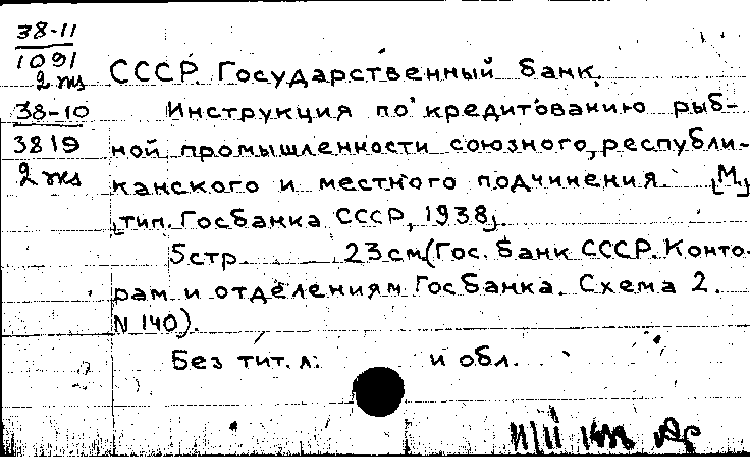 38-11
1091
2 экз
38-10
3819
2 экз
СССР. Государственный банк.
Инструкция по кредитованию рыб-
ной промышленности союзного, республи-
канского и местного подчинения. [М.,]
[тип. Госбанка СССР, 1938].
5 стр. 23 см. (Гос. Банк СССР. Конто-
рам и отделениям Госбанка. Схема 2.
N 140).
Без тит. л. и обл.